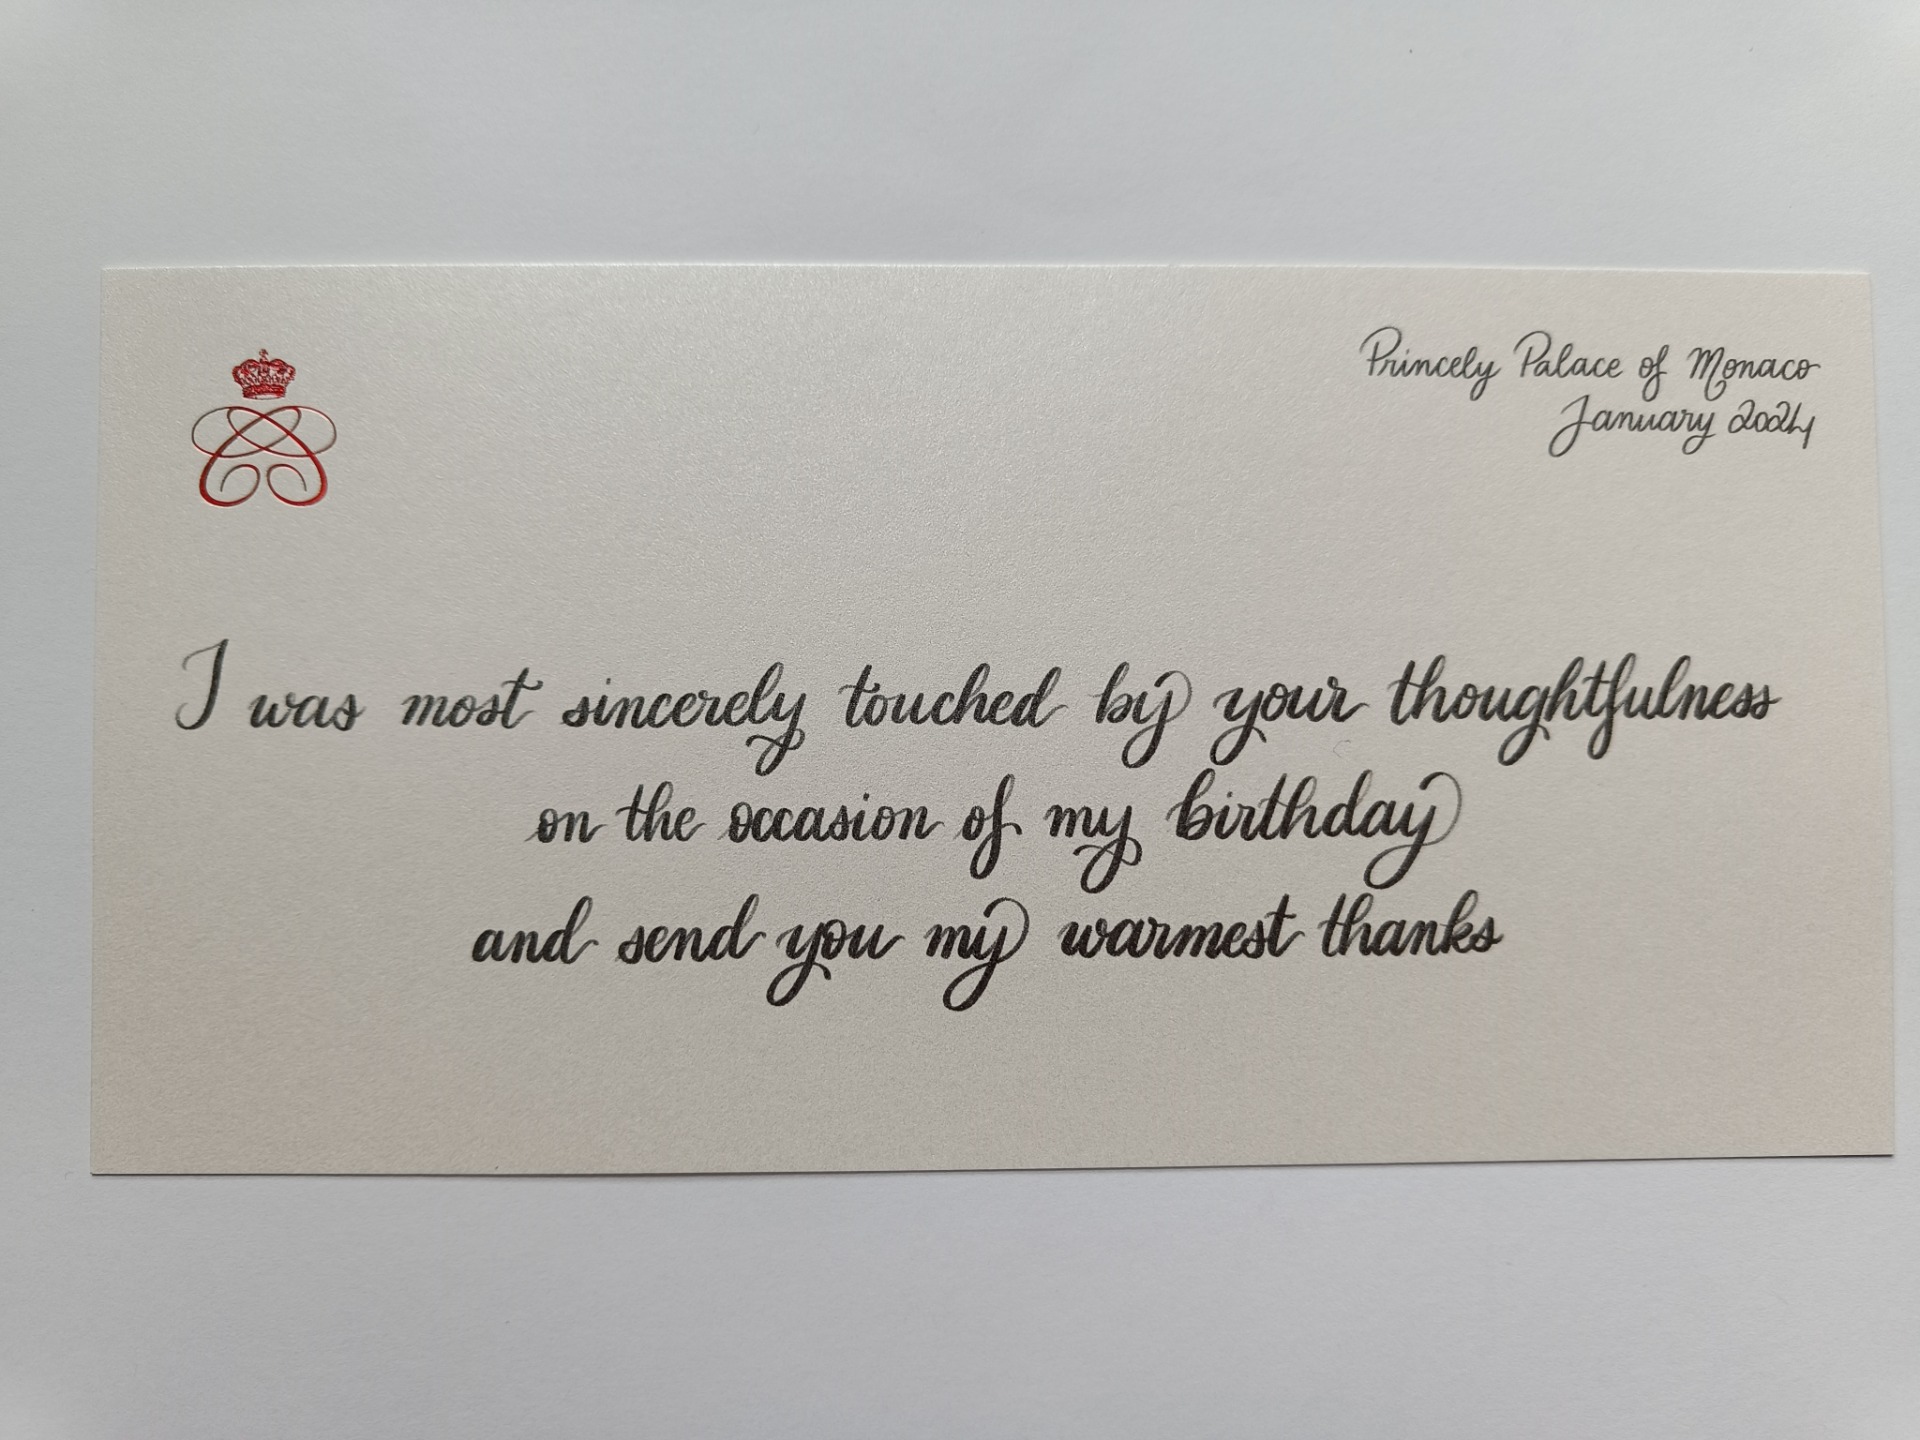 Princely Palace of Monaco
January 2024
I was most sincerely touched by your thoughtfulness
on the occasion of my birthday
and send you my warmest thanks